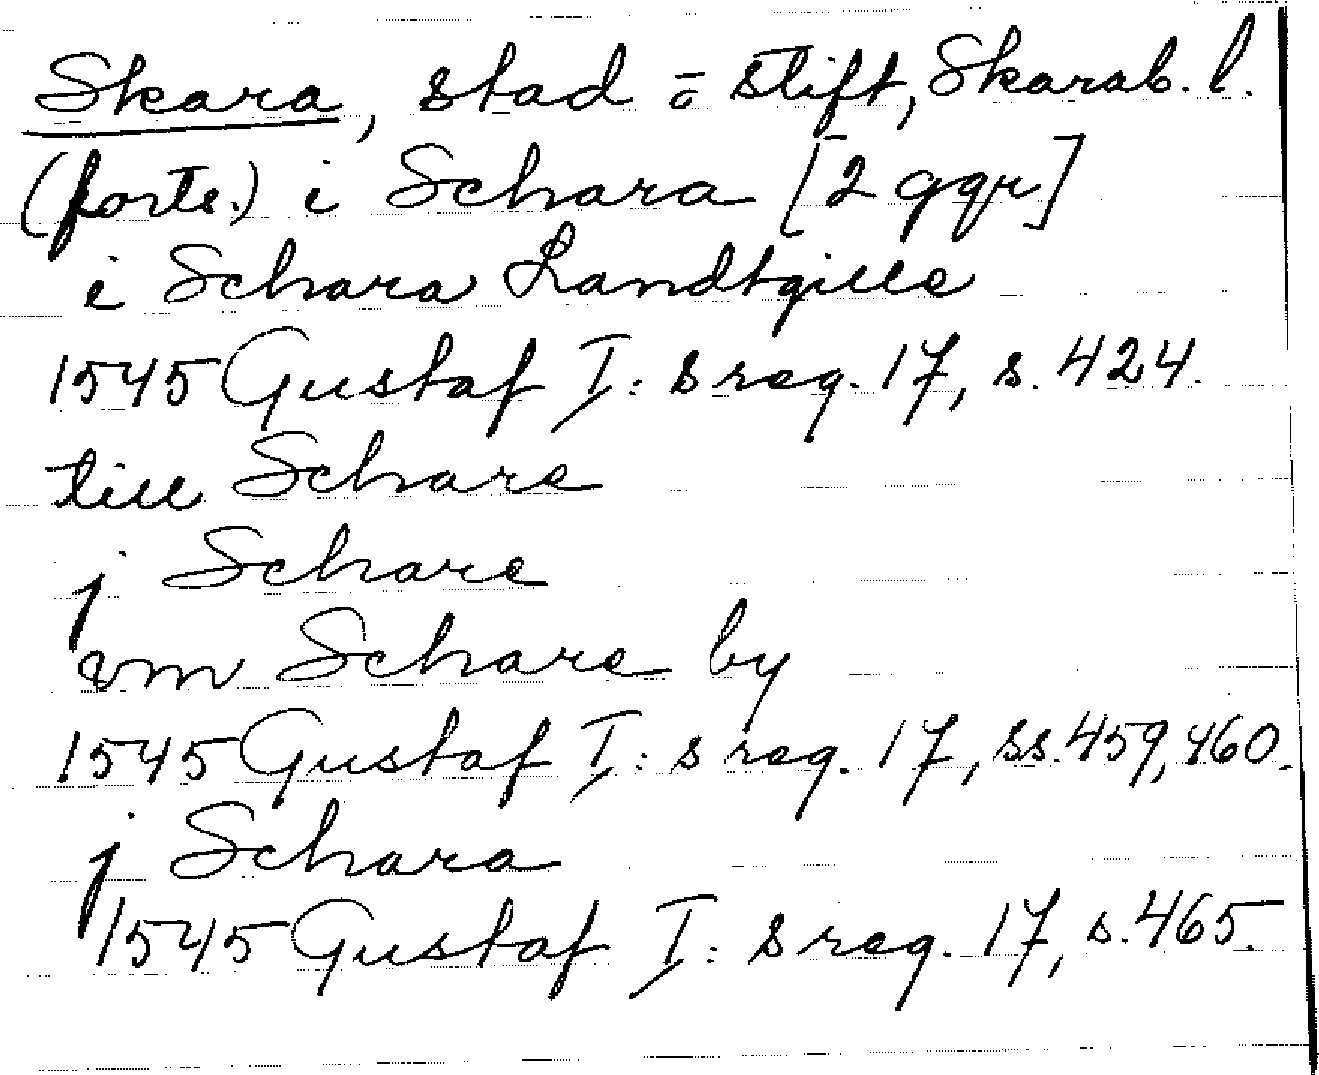 Skara, stad o stift, Skarab. l.
(forts.) i Schara [2 ggr]
i Schara Landtgille
1545 Gustaf I: s reg. 17, s. 424.
till Schare
j Schare
vm Schare by
1545 Gustaf I: s reg. 17, ss. 459, 460.
j Schara
1545 Gustaf I: s reg. 17, s. 465.